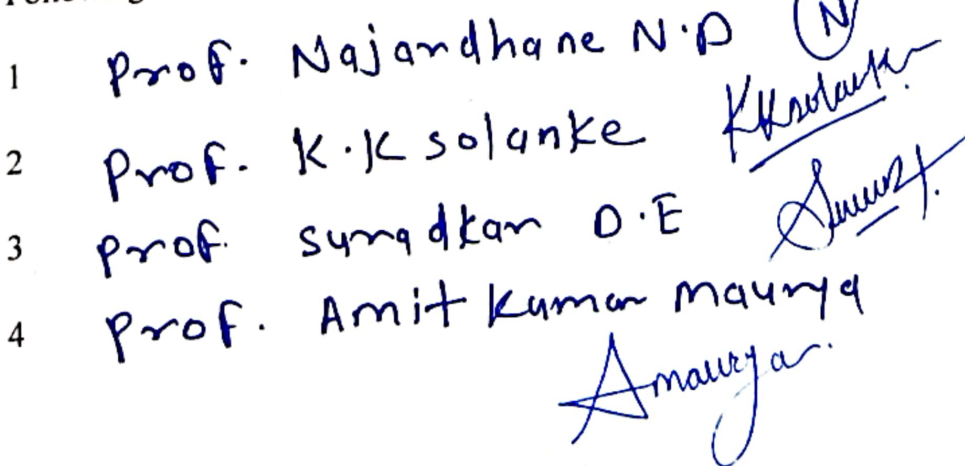 1 Prof. Najandhane N.D N
2 Prof. K.K solanke KKsolanke
3 Prof. suradkar D.E
4 Prof. Amit Kumar Maurya
Amaurya.